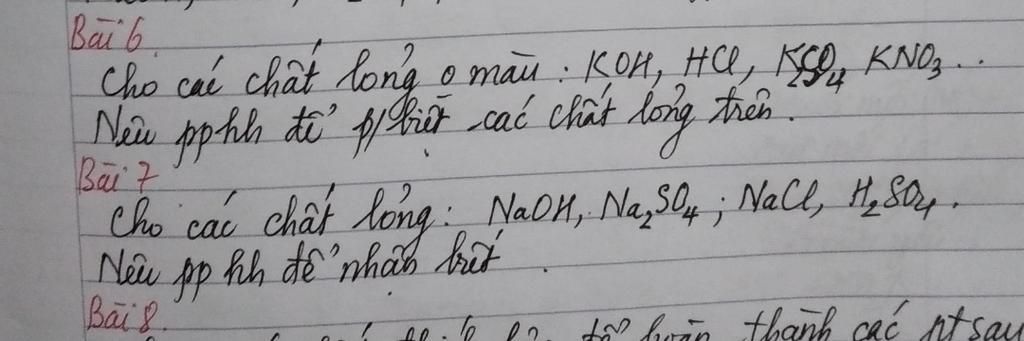 Bài 6
Cho các chất lỏng o màu : KOH, HCl, K₂SO₄, KNO₃..
Nêu pphh để p/biệt các chất lỏng trên.
Bài 7
Cho các chất lỏng: NaOH, Na₂SO₄; NaCl, H₂SO₄.
Nêu pp hh để nhận biết.
Bài 8.
thành các pt sau